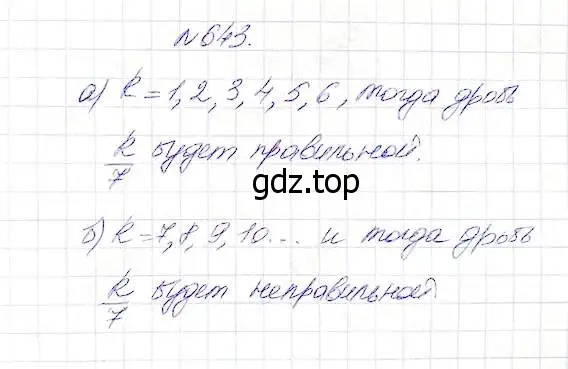 №643.
а) k = 1, 2, 3, 4, 5, 6, тогда дробь
k/7 будет правильной.
gdz.top
б) k = 7, 8, 9, 10... и тогда дробь
k/7 будет неправильной